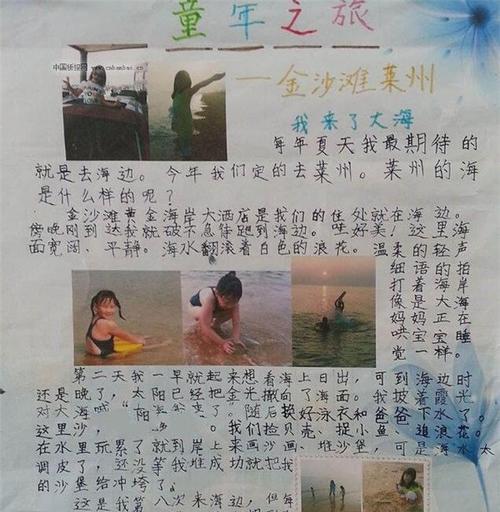 童年之旅
中国板报网
www.cnbanbao.cn
——金沙滩莱州
我来了大海
每年夏天我最期待的
就是去海边。今年我们定的去莱州。莱州的海
是什么样的呢？
金沙滩黄金海岸大酒店是我们的住处就在海边。
傍晚刚到达我就破不急待跑到海边。哇好美！这里海
面宽阔、平静。海水翻滚着白色的浪花。温柔的轻声
细语的拍
打着海岸
像是大海
妈妈正在
哄宝宝睡
觉一样。
第二天我一早就起来想看海上日出，可到海边时
还是晚了，太阳已经把金光撒向了海面。我披着霞光
对大海喊"阳 了。随后换好泳衣和爸爸下水了。
这里沙， 。我们捡贝壳、捉小鱼、追浪花。
在水里玩累了就到岸上来画沙画、堆沙堡，可是海水太
调皮了，还没等我堆成功就把我
的沙堡给冲垮了。
这是我第八次来海边，但每